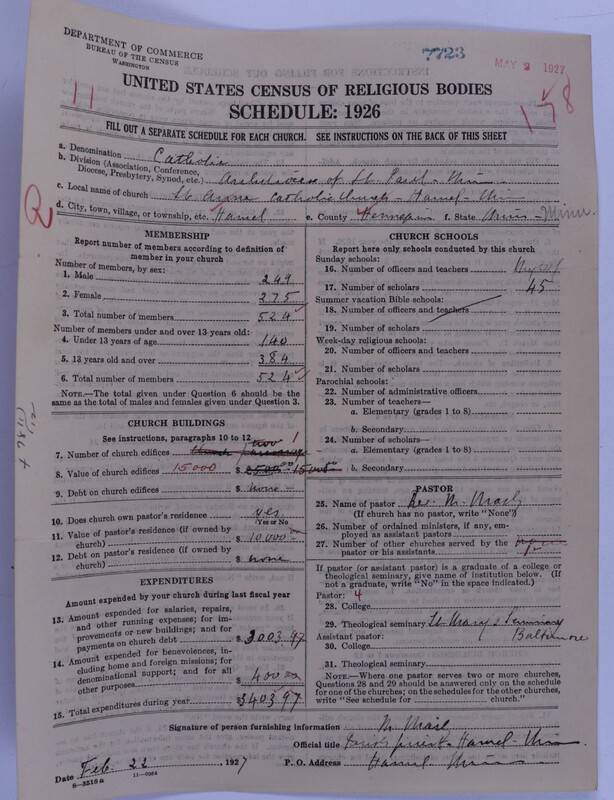 DEPARTMENT OF COMMERCE
BUREAU OF THE CENSUS
WASHINGTON
7723
MAY 2 1927
11
178
UNITED STATES CENSUS OF RELIGIOUS BODIES
SCHEDULE: 1926
FILL OUT A SEPARATE SCHEDULE FOR EACH CHURCH. SEE INSTRUCTIONS ON THE BACK OF THIS SHEET
a. Denomination Catholic
b. Division (Association, Conference, Diocese, Presbytery, Synod, etc.) Archdiocese of St. Paul - Minn
c. Local name of church St. Catholic Church - Hamel - Minn
d. City, town, village, or township, etc. Hamel e. County Hennepin f. State Minn - Minn.
MEMBERSHIP
Report number of members according to definition of
member in your church
Number of members, by sex:
1. Male 249
2. Female 275
3. Total number of members 524
Number of members under and over 13 years old:
4. Under 13 years of age 140
5. 13 years old and over 384
6. Total number of members 524
NOTE.—The total given under Question 6 should be
the same as the total of males and females given under Question 3.
CHURCH BUILDINGS
See instructions, paragraphs 10 to 12
7. Number of church edifices 1
8. Value of church edifices 15000 $ 15000
9. Debt on church edifices $ none
10. Does church own pastor's residence yes
(Yes or No)
11. Value of pastor's residence (if owned by
church) $ 10,000
12. Debt on pastor's residence (if owned by
church) $ none
EXPENDITURES
Amount expended by your church during last fiscal year
13. Amount expended for salaries, repairs,
and other running expenses; for im-
provements or new buildings; and for
payments on church debt $ 3003.97
14. Amount expended for benevolences, in-
cluding home and foreign missions; for
denominational support; and for all
other purposes $ 400
15. Total expenditures during year $ 3403.97
CHURCH SCHOOLS
Report here only schools conducted by this church
Sunday schools:
16. Number of officers and teachers Myself
17. Number of scholars 45
Summer vacation Bible schools:
18. Number of officers and teachers
19. Number of scholars
Week-day religious schools:
20. Number of officers and teachers
21. Number of scholars
Parochial schools:
22. Number of administrative officers
23. Number of teachers—
a. Elementary (grades 1 to 8)
b. Secondary
24. Number of scholars—
a. Elementary (grades 1 to 8)
b. Secondary
PASTOR
25. Name of pastor Rev. M.
(If church has no pastor, write "None")
26. Number of ordained ministers, if any, em-
ployed as assistant pastors
27. Number of other churches served by the
pastor or his assistants
If pastor (or assistant pastor) is a graduate of a college or
theological seminary, give name of institution below. (If
not a graduate, write "No" in the space indicated.)
Pastor: 4
28. College
29. Theological seminary St. Mary's Seminary
Assistant pastor: Baltimore
30. College
31. Theological seminary
NOTE.—Where one pastor serves two or more churches,
Questions 28 and 29 should be answered only on the schedule
for one of the churches; on the schedules for the other churches,
write "See schedule for church."
Signature of person furnishing information M.
Official title priest - Hamel Minn
Date Feb 22 1927 P. O. Address Hamel Minn
8-5516a 11-9084